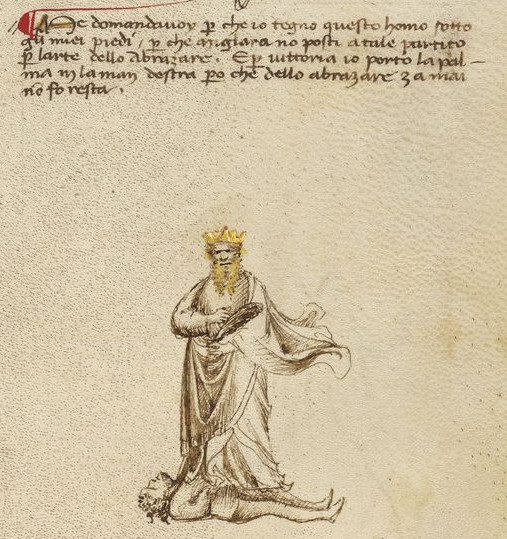 Me domandavoy p che io tegno questo homo sotto
gli miei piedi, p che migliara no posti a tale partito
p larte dello Abrazare. E p vittoria io porto la pal-
ma in la man destra po che dello abrazare za mai
no fo resta.